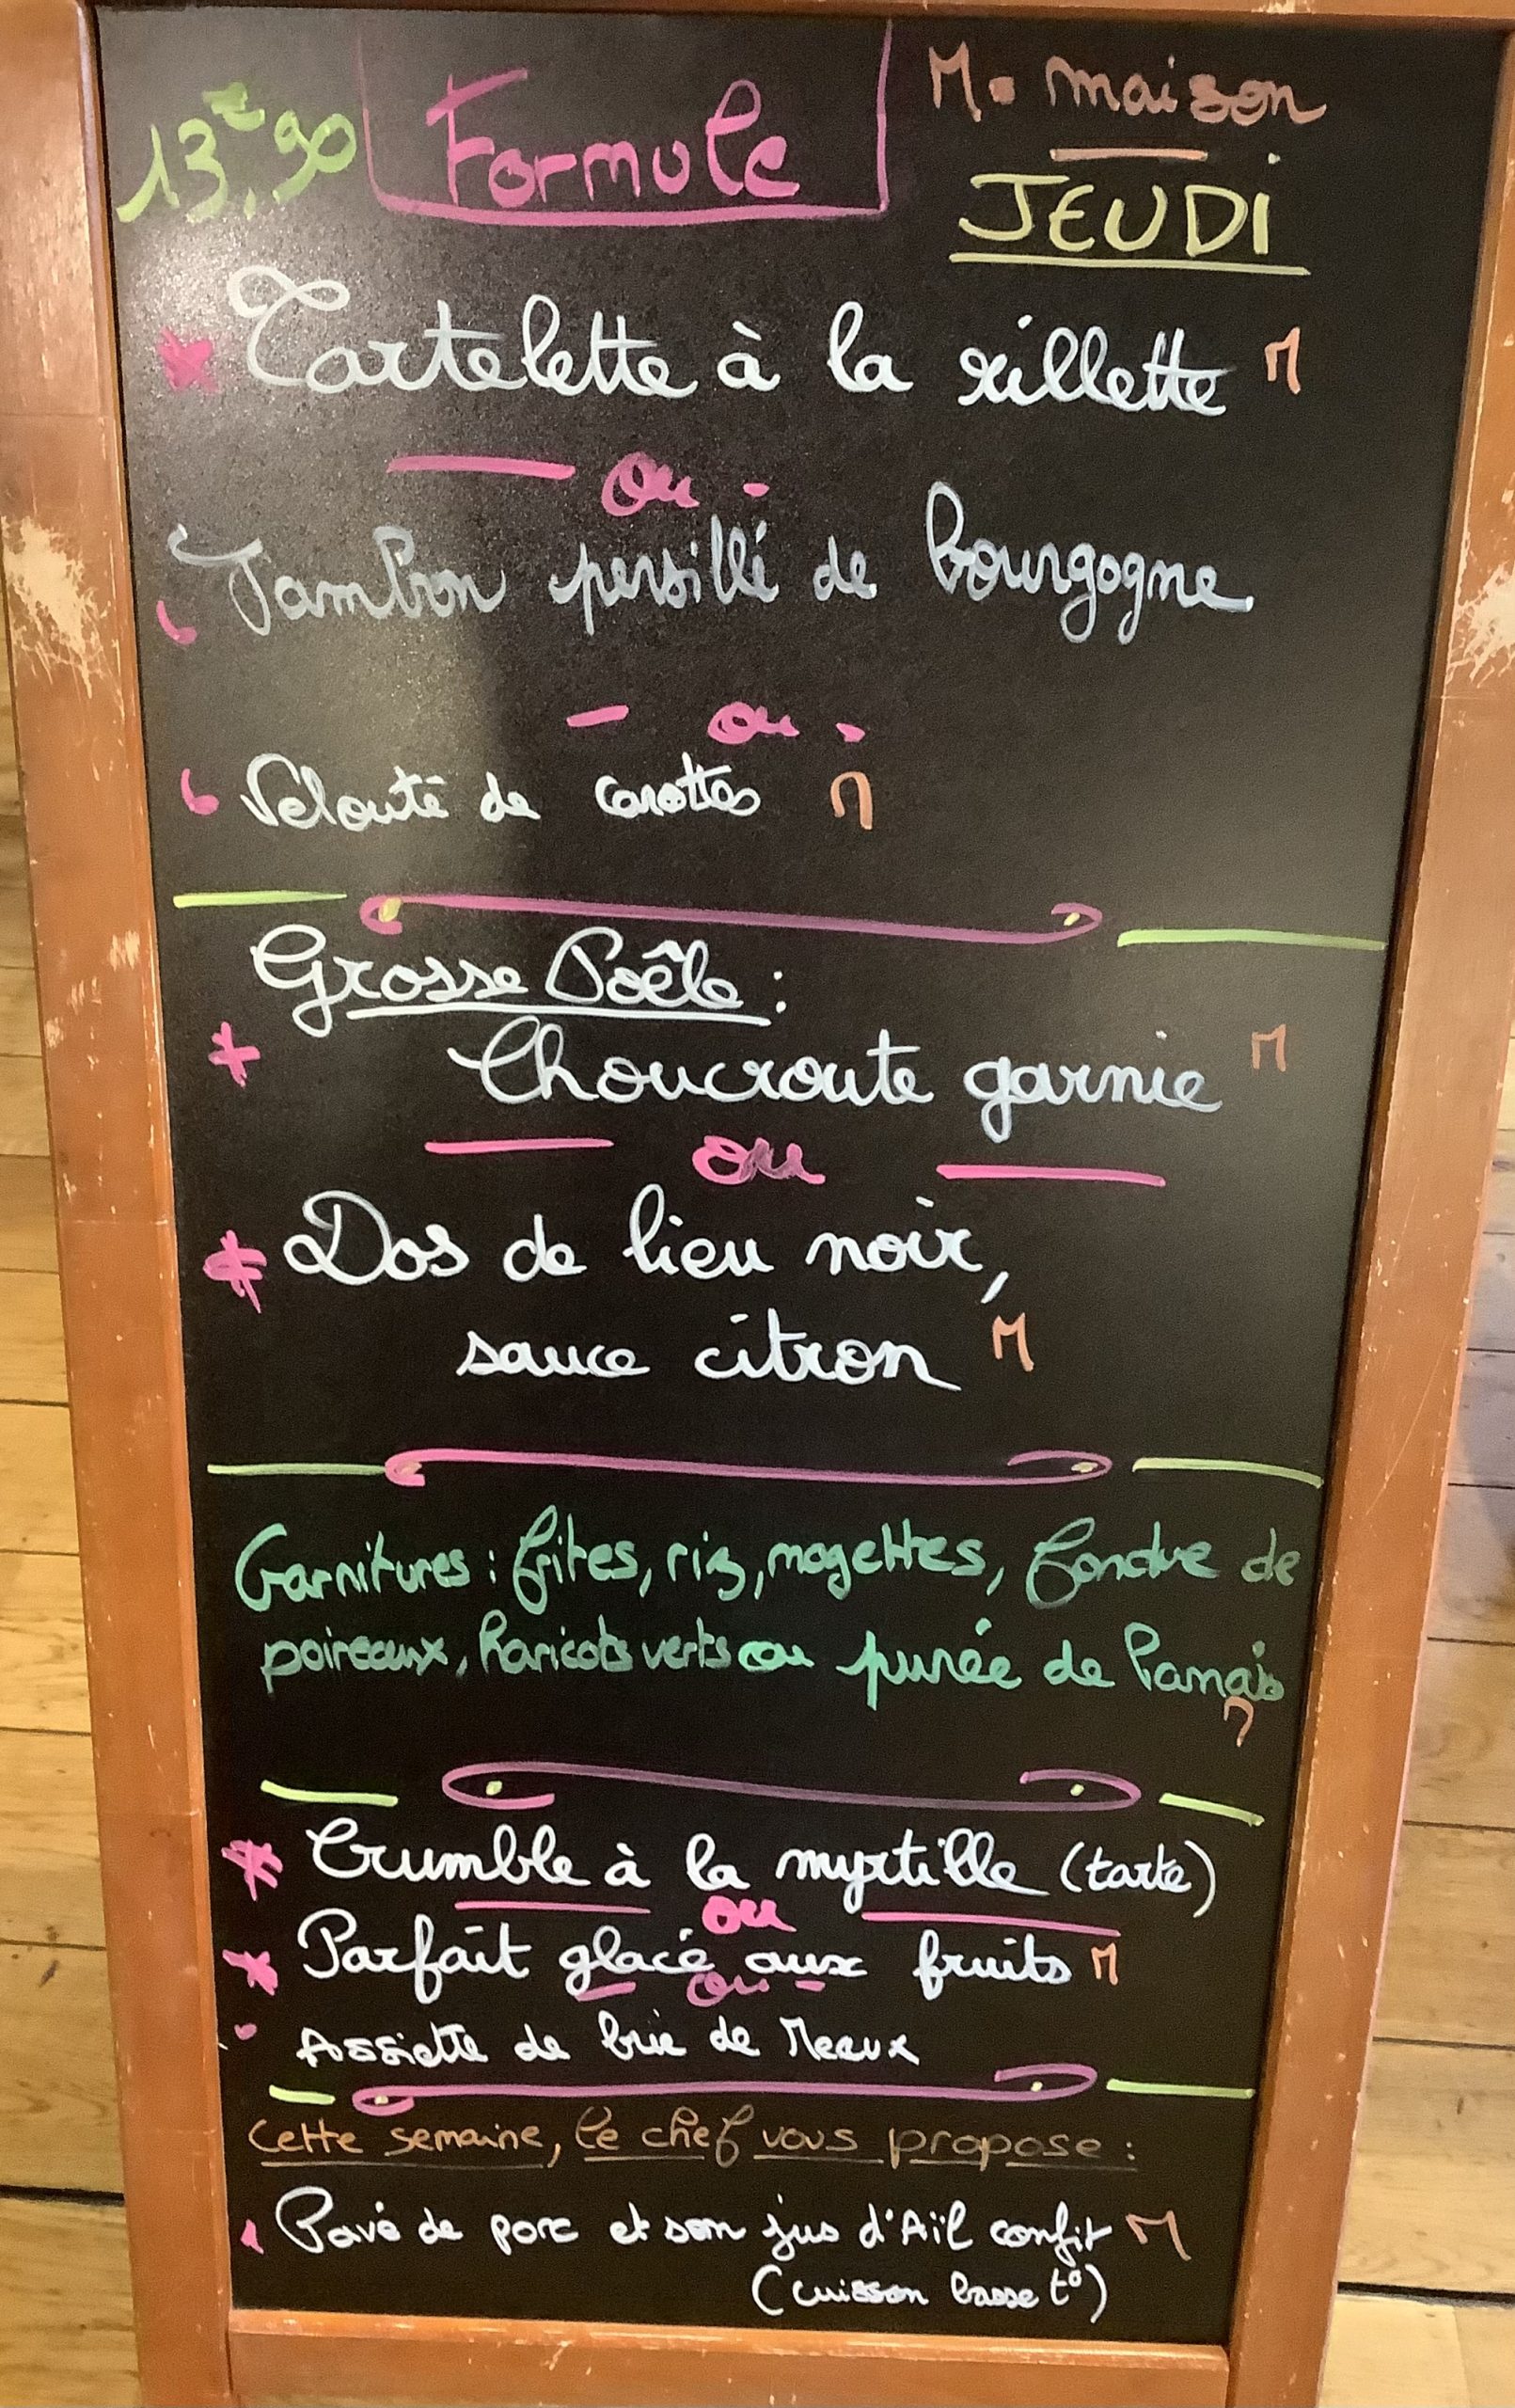 13€,90 Formule M. maison
JEUDI
Tartelette à la rillette M
ou
Jambon persillé de bourgogne
ou
Velouté de carottes M
Grosse Poêle :
Choucroute garnie M
ou
Dos de lieu noir,
sauce citron M
Garnitures : frites, riz, mogettes, fondue de
poireaux, haricots verts ou purée de Panais
M
Crumble à la myrtille (tarte)
ou
Parfait glacé aux fruits M
ou
Assiette de brie de Meaux
Cette semaine, le chef vous propose :
Pavé de porc et son jus d'Aïl confit M
(cuisson basse t°)